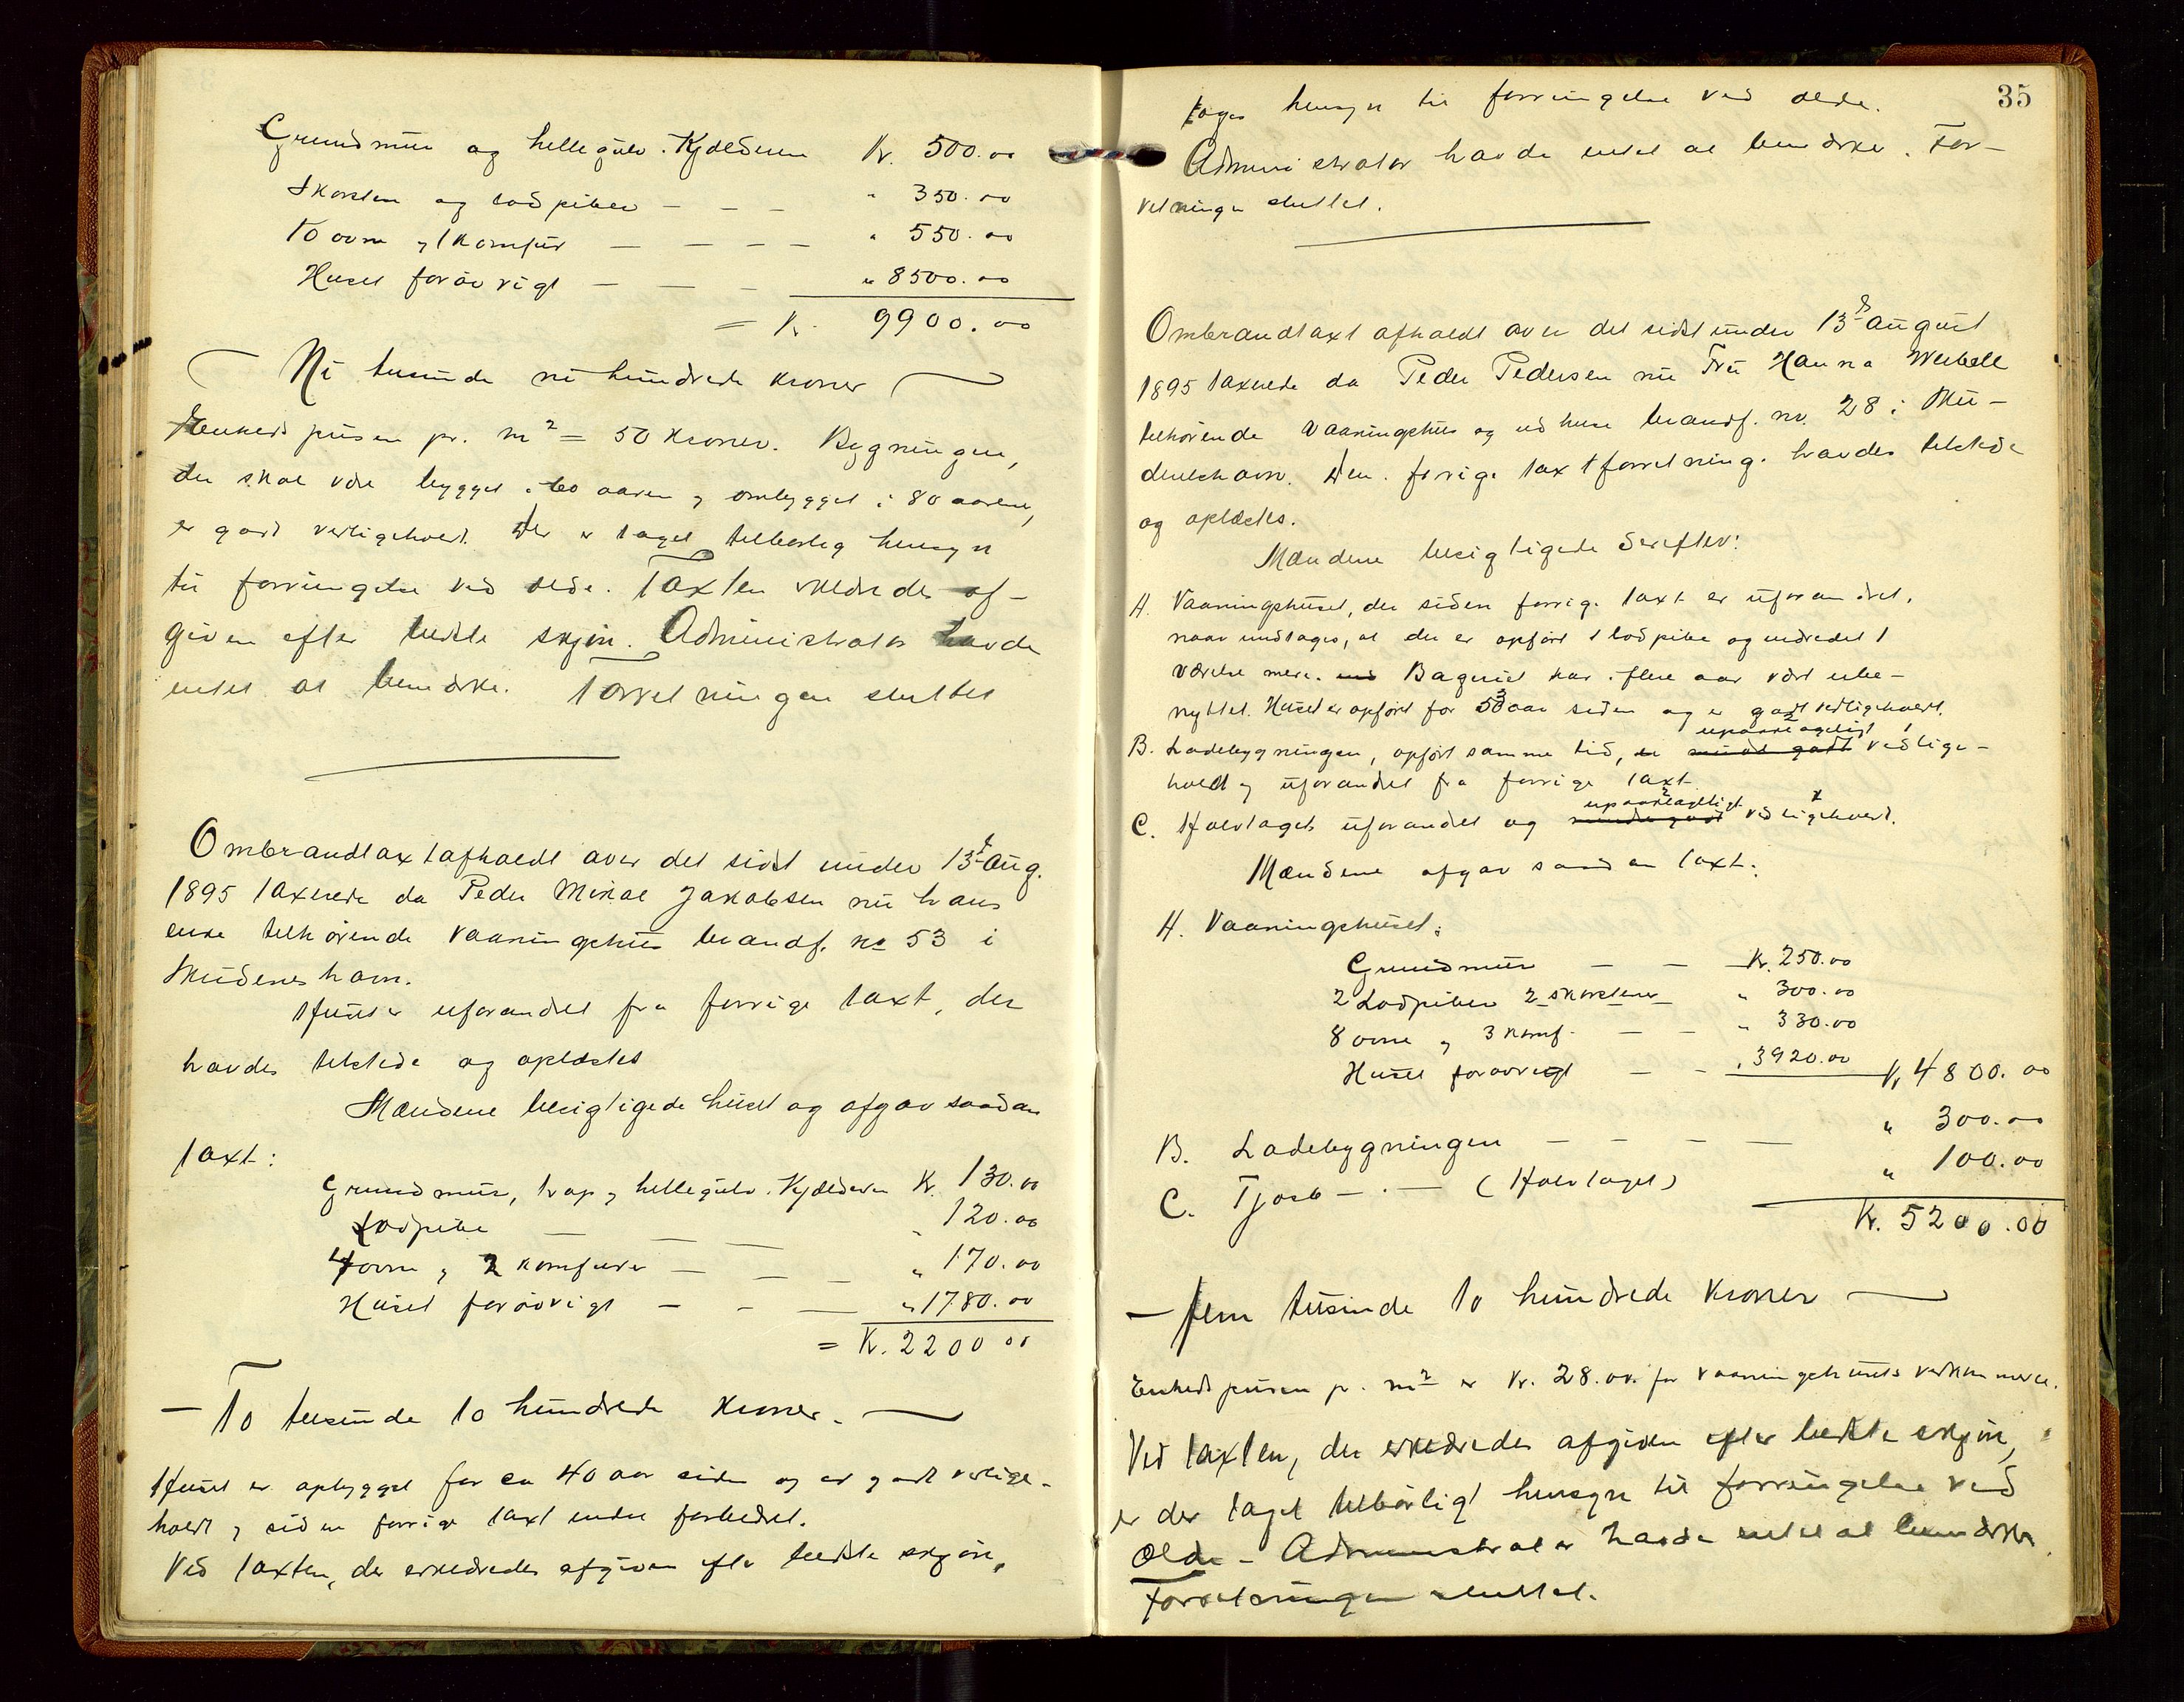 Grundmur og hellegulv i Kjælderen Kr. 500.00
Skorsten og lodpiber — — — " 350.00
10 ovne og 1 komfur — — — — " 550.00
Huset forøvrigt — — — " 8500.00
= Kr. 9900.00
— Ni tusinde ni hundrede kroner —
Enhedsprisen pr. m² = 50 Kroner. Bygningen,
der skal være bygget i 60 aarene og ombygget i 80 aarene,
er godt vedligeholdt. Der er taget tilbørlig hensyn
til forringelse ved ælde. Taxten erklæredes af-
given efter bedste skjøn. Administrator havde
intet at bemærke. Forretningen sluttet
Ombrandtaxt afholdt over det sidst under 13de Aug.
1895 taxerede da Peder Mikal Jakobsen nu hans
enke tilhørende vaaningshus brandf. no 53 i
Skudeneshavn.
Huset er uforandret fra forrige taxt, der
havdes tilstede og oplæstes
Mændene besigtigede huset og afgav saadan
taxt:
Grundmur, trap og hellegulv i Kjælderen Kr. 130.00
Lodpibe — — — " 120.00
4 ovne og 2 komfurer — — — " 170.00
Huset forøvrigt — — — " 1780.00
= Kr. 2200.00
— To tusinde to hundrede kroner. —
Huset er opbygget for ca 40 aar siden og er godt vedlige-
holdt og siden forrige taxt endel forbedret.
Ved taxten, der erklæredes afgiven efter bedste skjøn,
35
toges hensyn til forringelse ved ælde.
Administrator havde intet at bemærke. For-
retningen sluttet.
Ombrandtaxt afholdt over det sidst under 13de august
1895 taxerede da Peder Pedersen nu Fru Hanna Weibell
tilhørende vaaningshus og udhuse brandf. no. 28 i Sku-
deneshavn. Den forrige taxtforretning havdes tilstede
og oplæstes.
Mændene besigtigede derefter:
A. Vaaningshuset, der siden forrige taxt er uforandret,
naar undtages, at der er opført 1 lodpibe og indredet 1
værelse mere. Baghuset har i flere aar vært ube-
nyttet. Huset er opført for 53 aar siden og er godt vedligeholdt.
upaaklageligt
B. Ladebygningen, opført samme tid, er mindre godt vedlige-
hold og uforandret fra forrige taxt.
upaaklageligt
C. Halvtaget uforandret og mindre godt vedligeholdt.
Mændene afgav saadan taxt:
A. Vaaningshuset:
Grundmur — — Kr. 250.00
2 Lodpiber 2 skorstener " 300.00
8 ovne og 3 komf. — — " 330.00
Huset forøvrigt — — " 3920.00 Kr. 4800.00
B. Ladebygningen — — — — " 300.00
C. Tjæreb — · — (Halvtaget) " 100.00
Kr. 5200.00
— Fem tusinde to hundrede kroner —
Enhedsprisen pr. m² er Kr. 28.00 for vaaningshusets vedkommende.
Ved taxten, der erklæredes afgiven efter bedste skjøn,
er der taget tilbørligt hensyn til forringelse ved
ælde - Administrator havde intet at bemærke.
Forretningen sluttet.